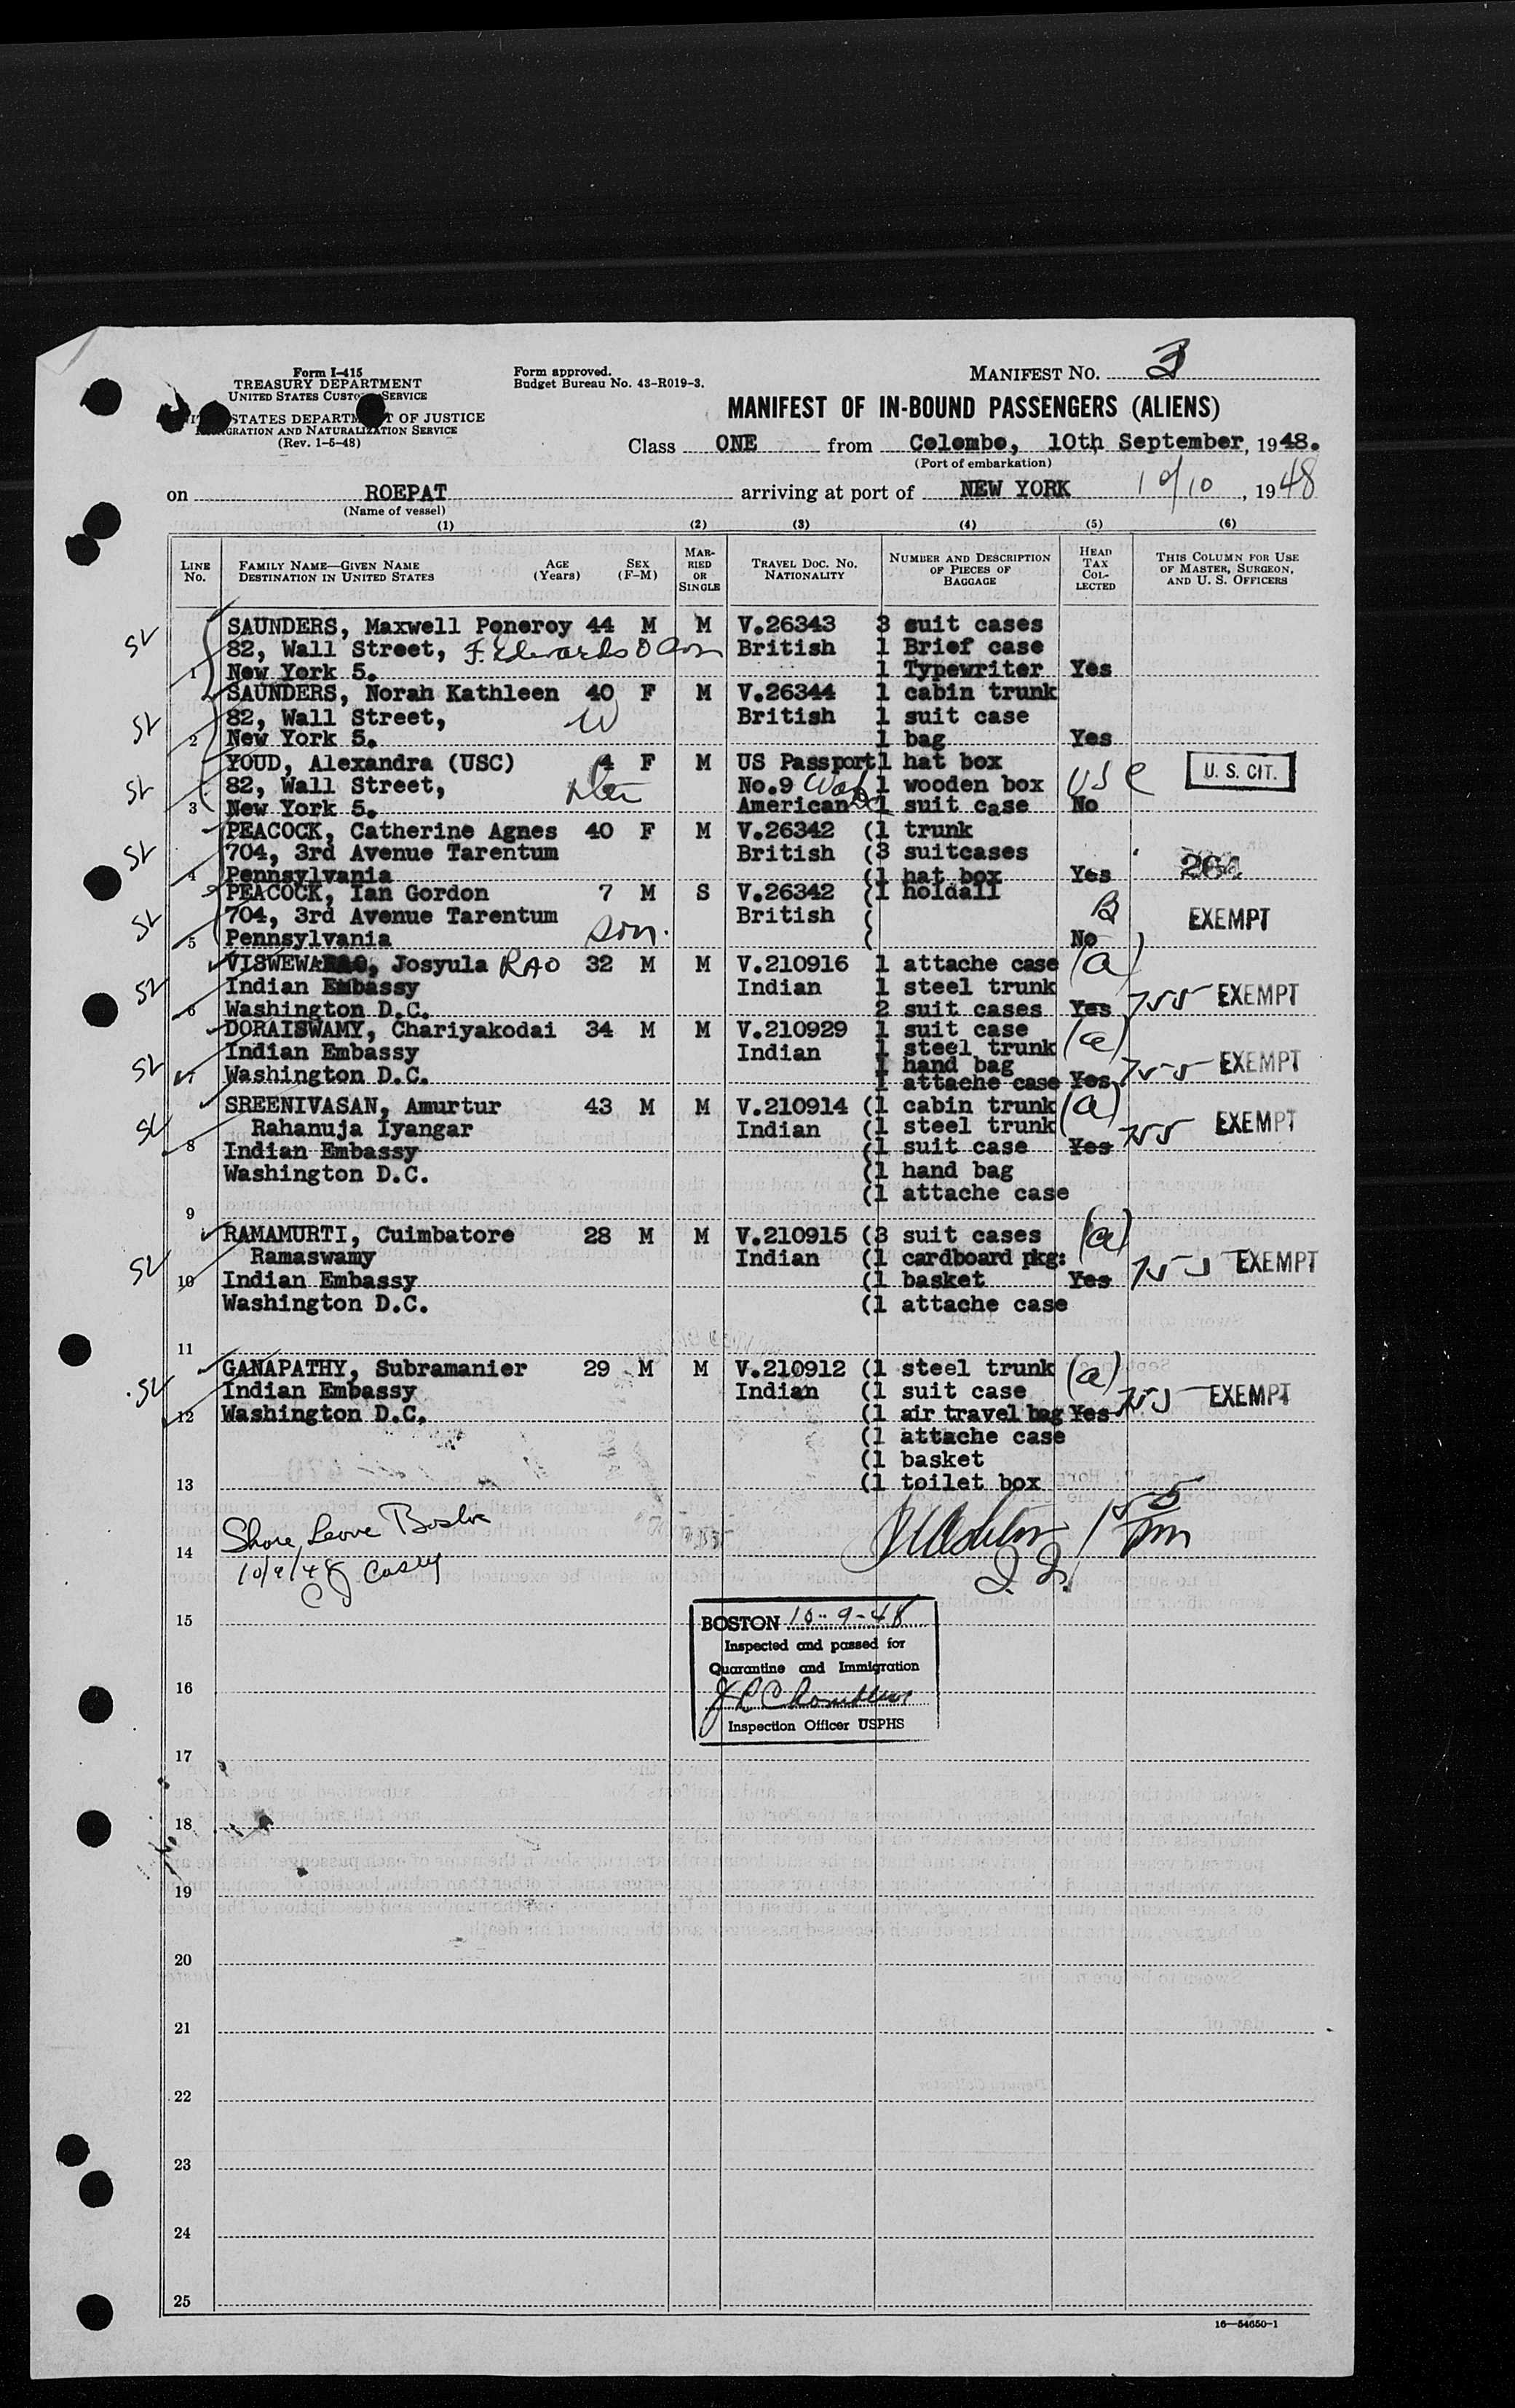 Form I-415
TREASURY DEPARTMENT
UNITED STATES CUSTOMS SERVICE
UNITED STATES DEPARTMENT OF JUSTICE
IMMIGRATION AND NATURALIZATION SERVICE
(Rev. 1-5-48)
Form approved.
Budget Bureau No. 43-R019-3.
MANIFEST No. 3
MANIFEST OF IN-BOUND PASSENGERS (ALIENS)
Class ONE from Colombo, 10th September, 1948.
(Port of embarkation)
on ROEPAT arriving at port of NEW YORK 10/10, 1948
(Name of vessel)
(1) (2) (3) (4) (5) (6)
LINE No. FAMILY NAME—GIVEN NAME DESTINATION IN UNITED STATES AGE (Years) SEX (F-M) MARRIED OR SINGLE TRAVEL DOC. NO. NATIONALITY NUMBER AND DESCRIPTION OF PIECES OF BAGGAGE HEAD TAX COLLECTED THIS COLUMN FOR USE OF MASTER, SURGEON, AND U. S. OFFICERS
SAUNDERS, Maxwell Poneroy 44 M M V.26343 3 suit cases
SL 82, Wall Street, F. Edwards British 1 Brief case
1 New York 5. 1 Typewriter Yes
SAUNDERS, Norah Kathleen 40 F M V.26344 1 cabin trunk
SL 82, Wall Street, W British 1 suit case
2 New York 5. 1 bag Yes
YOUD, Alexandra (USC) 4 F M US Passport 1 hat box
SL 82, Wall Street, No.9 1 wooden box USC U. S. CIT.
3 New York 5. American 1 suit case No
PEACOCK, Catherine Agnes 40 F M V.26342 (1 trunk
SL 704, 3rd Avenue Tarentum British (3 suitcases
4 Pennsylvania (1 hat box Yes 264
PEACOCK, Ian Gordon 7 M S V.26342 (1 holdall
SL 704, 3rd Avenue Tarentum British ( B EXEMPT
5 Pennsylvania son. ( No
VISWEWARAO, Josyula RAO 32 M M V.210916 1 attache case (a)
SL Indian Embassy Indian 1 steel trunk
6 Washington D.C. 2 suit cases Yes 755 EXEMPT
DORAISWAMY, Chariyakodai 34 M M V.210929 1 suit case (a)
Indian Embassy Indian 1 steel trunk
SL 1 hand bag
7 Washington D.C. 1 attache case Yes 755 EXEMPT
SREENIVASAN, Amurtur 43 M M V.210914 (1 cabin trunk (a)
SL Rahanuja Iyangar Indian (1 steel trunk
8 Indian Embassy (1 suit case Yes 755 EXEMPT
Washington D.C. (1 hand bag
(1 attache case
9
RAMAMURTI, Cuimbatore 28 M M V.210915 (3 suit cases (a)
SL Ramaswamy Indian (1 cardboard pkg:
10 Indian Embassy (1 basket Yes 755 EXEMPT
Washington D.C. (1 attache case
11
GANAPATHY, Subramanier 29 M M V.210912 (1 steel trunk (a)
SL Indian Embassy Indian (1 suit case
12 Washington D.C. (1 air travel bag Yes 755 EXEMPT
(1 attache case
(1 basket
13 (1 toilet box
Shore Leave Boston
14
10/9/48 Casey
15
BOSTON 10-9-48
Inspected and passed for
Quarantine and Immigration
16
Inspection Officer USPHS
17
18
19
20
21
22
23
24
25
16—54650-1